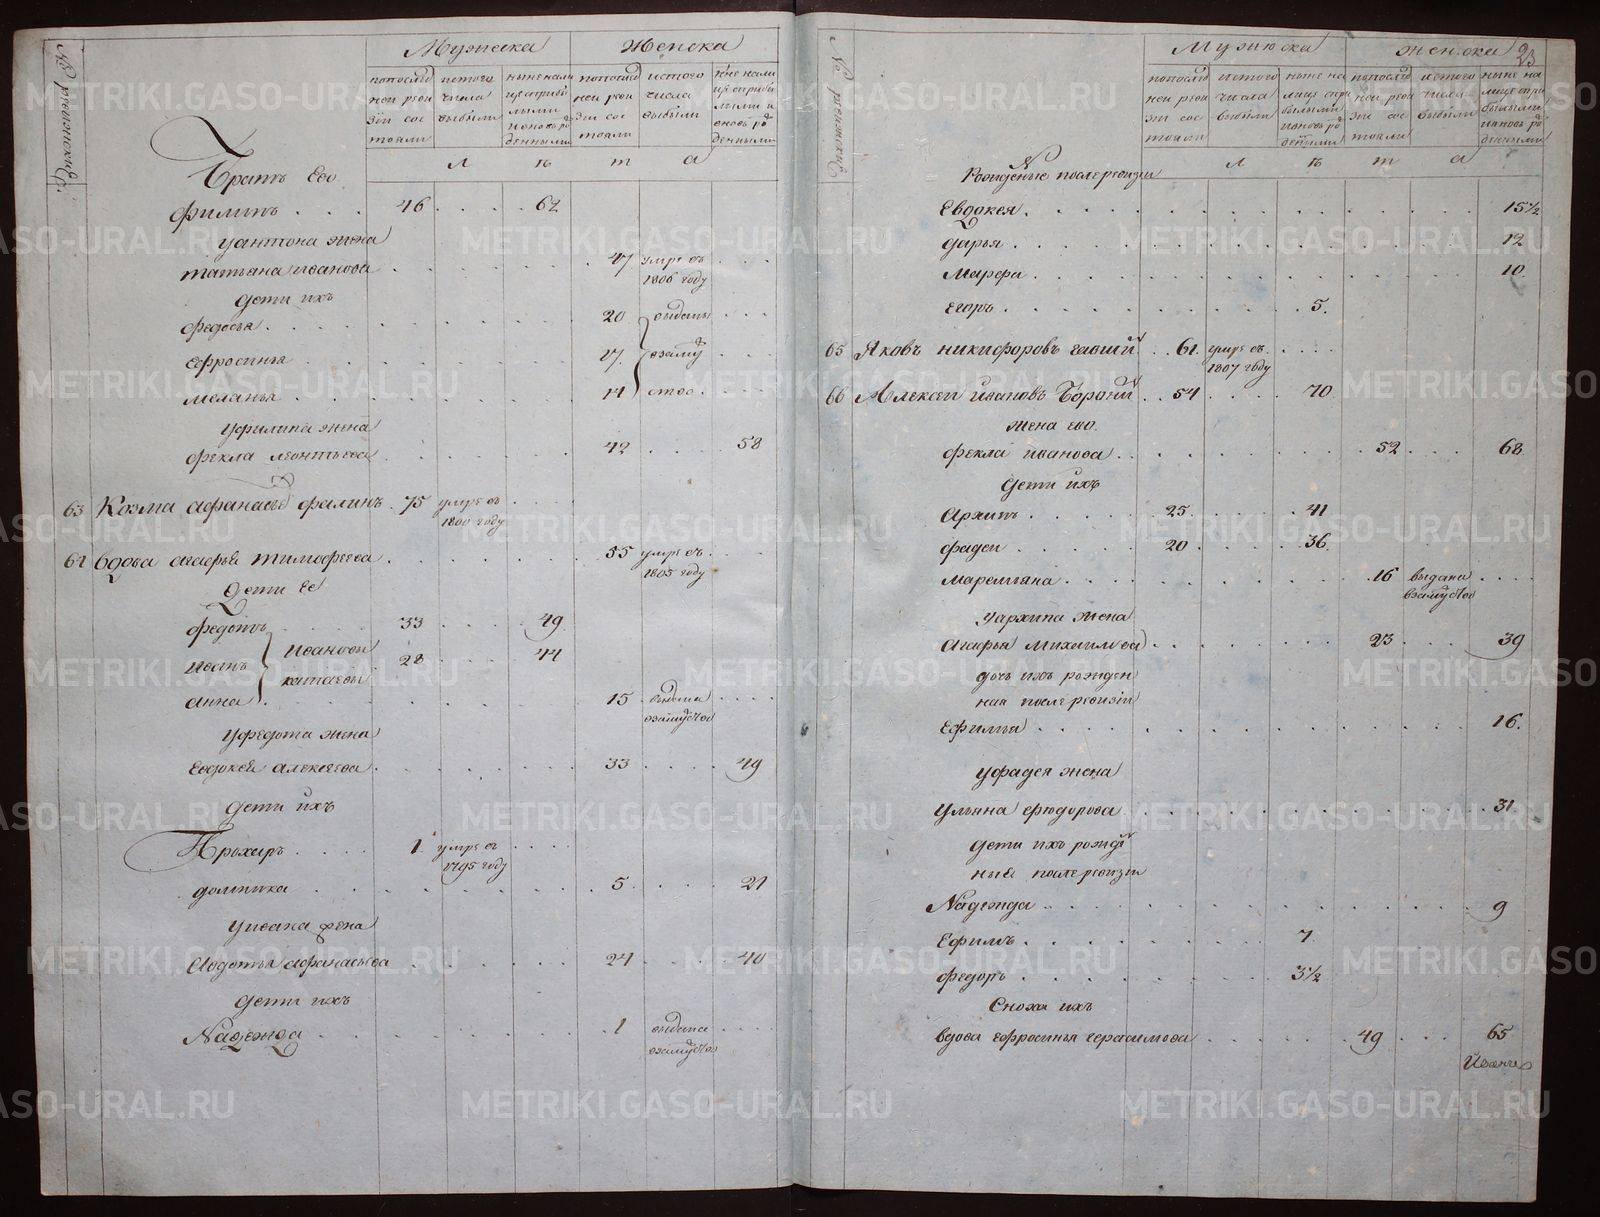 № ревижские
Мужеска
Женска
попослед
ней реви
зіи сос
тояли
истого
числа
выбыли
ныне нали
це сприбы
лыми
и вновь ро
денными
попослед
ней реви
зіи сос
тояли
истого
числа
выбыли
ныне нали
це сприбы
лыми и
вновь ро
денными
л ѣ т а
Братъ Ево
Филипъ 46 62
У антона жена
татьяна иванова 47 умре въ
1806 году
дети ихъ
федосья 20 выданы
ефросинья 17 взаму
меланья 14 ство
У филипа жена
фекла леонтьева 42 58
63 Козма афанасьевъ фалинъ 75 умре въ
1800 году
64 вдова агафья тимофеева 55 умре въ
1805 году
Дети Ее
федотъ 33 49
иванъ ивановы 28 44
катаевы
анна 15 выдана
взамужство
У федота жена
Евдокея алексеева 33 49
дети ихъ
Прохиръ 1 умре въ
1795 году
домника 5 21
У ивана жена
Авдотья афанасьева 24 40
дети ихъ
Надежда 1 выдана
взамужство
23
Мужеска
женска
попослед
ней реви
зіи сос
тояли
истого
числа
выбыли
ныне на
лице спри
былыми
и вновь ро
денными
попослед
ней реви
зіи сос
тояли
истого
числа
выбыли
ныне на
лице спри
былыми
и вновь ро
денными
л ѣ т а
Рожденые послеревизіи
Евдокея 15½
дарья 12
Марфа 10
Егоръ 5
65 Яковъ никифоровъ 61 умре въ
1807 году
66 Алексеи ивановъ 54 70
жена ево
фекла иванова 52 68
Дети ихъ
Архипъ 25 41
фадеи 20 36
маремьяна 16 выдана
взамужство
У архипа жена
Агафья михаилова 23 39
дочь ихъ рожден
ная после ревизіи
Ефимья 16
У фадея жена
Ульяна фюдорова 31
дети ихъ рожде
ные после ревизіи
Надежда 9
Ефимъ 7
федоръ 3½
Сноха ихъ
вдова ефросинья герасимова 49 65
METRIKI.GASO-URAL.RU